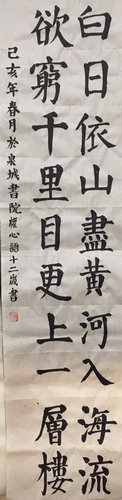 白日依山盡黃河入海流
欲窮千里目更上一層樓
己亥年春月於泉城書院櫂心語十二歲書